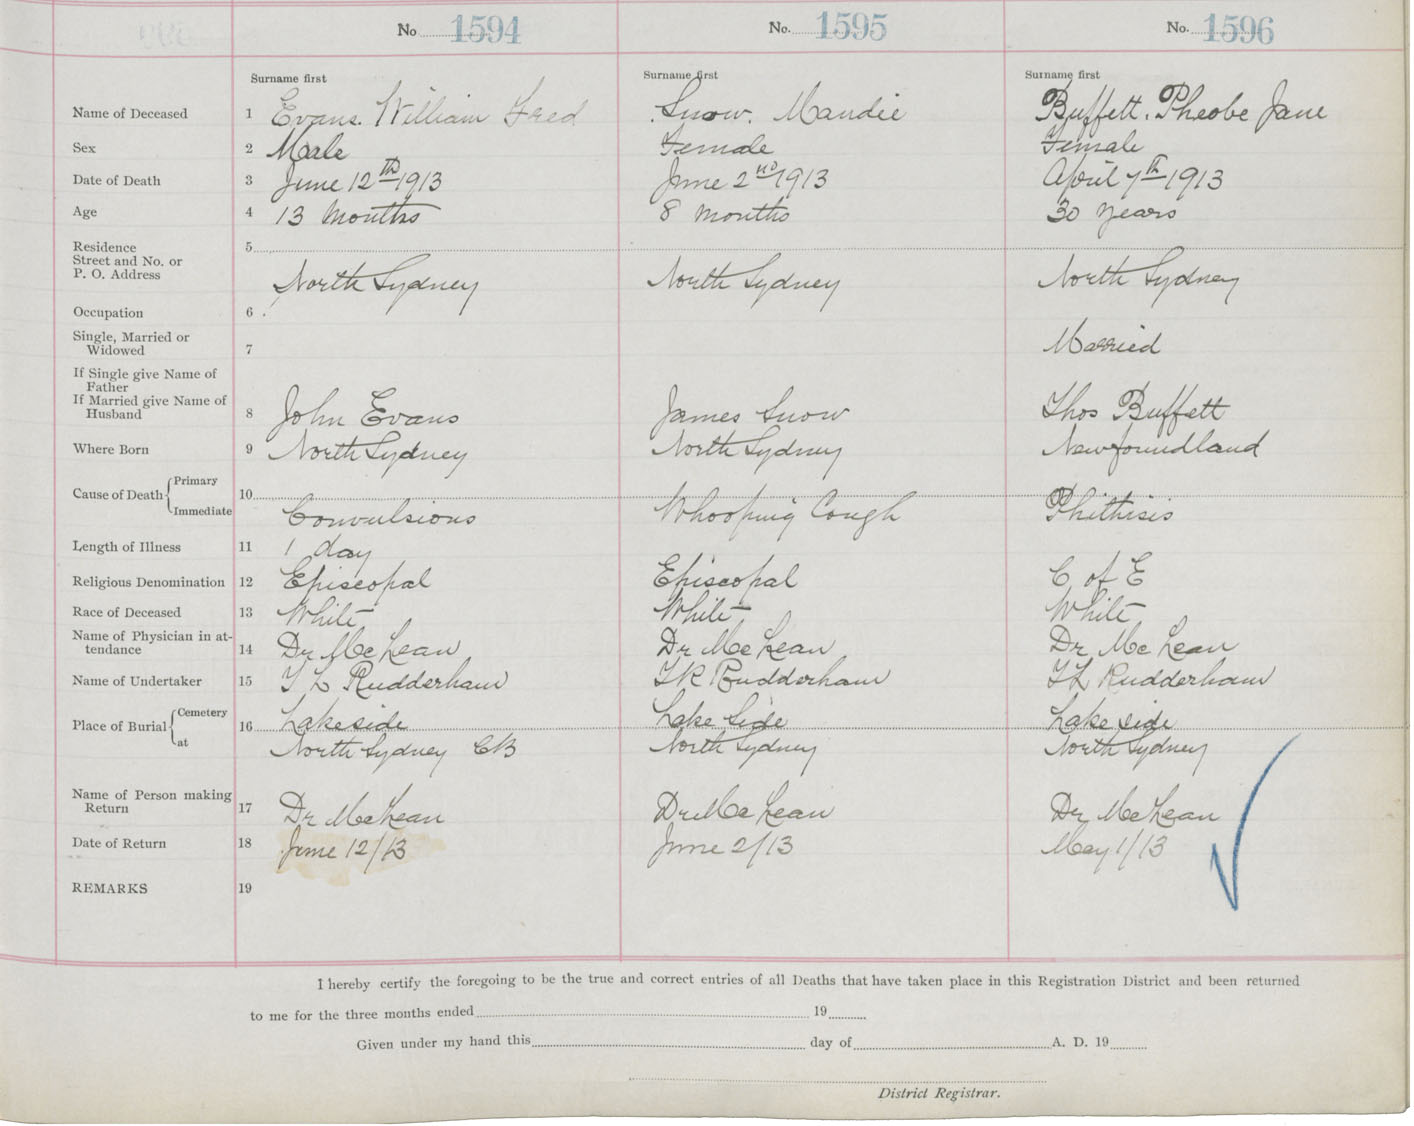 No 1594 No. 1595 No. 1596
Surname first Surname first Surname first
Name of Deceased 1 Evans. William Fred Snow. Maudie Buffett. Pheobe Jane
Sex 2 Male Female Female
Date of Death 3 June 12th 1913 June 2nd 1913 April 7th 1913
Age 4 13 Months 8 Months 30 years
Residence 5
Street and No. or
P. O. Address North Sydney North Sydney North Sydney
Occupation 6
Single, Married or
Widowed 7 Married
If Single give Name of
Father
If Married give Name of
Husband 8 John Evans James Snow Thos Buffett
Where Born 9 North Sydney North Sydney Newfoundland
Cause of Death Primary 10
Immediate Convulsions Whooping Cough Phithisis
Length of Illness 11 1 day
Religious Denomination 12 Episcopal Episcopal C of E
Race of Deceased 13 White White White
Name of Physician in at-
tendance 14 Dr McLean Dr McLean Dr McLean
Name of Undertaker 15 T L Rudderham T R Rudderham T L Rudderham
Place of Burial Cemetery 16 Lakeside Lake Side Lake side
at North Sydney CB North Sydney North Sydney
Name of Person making
Return 17 Dr McLean Dr McLean Dr McLean
Date of Return 18 June 12/13 June 2/13 May 1/13
REMARKS 19
I hereby certify the foregoing to be the true and correct entries of all Deaths that have taken place in this Registration District and been returned
to me for the three months ended 19
Given under my hand this day of A. D. 19
District Registrar.